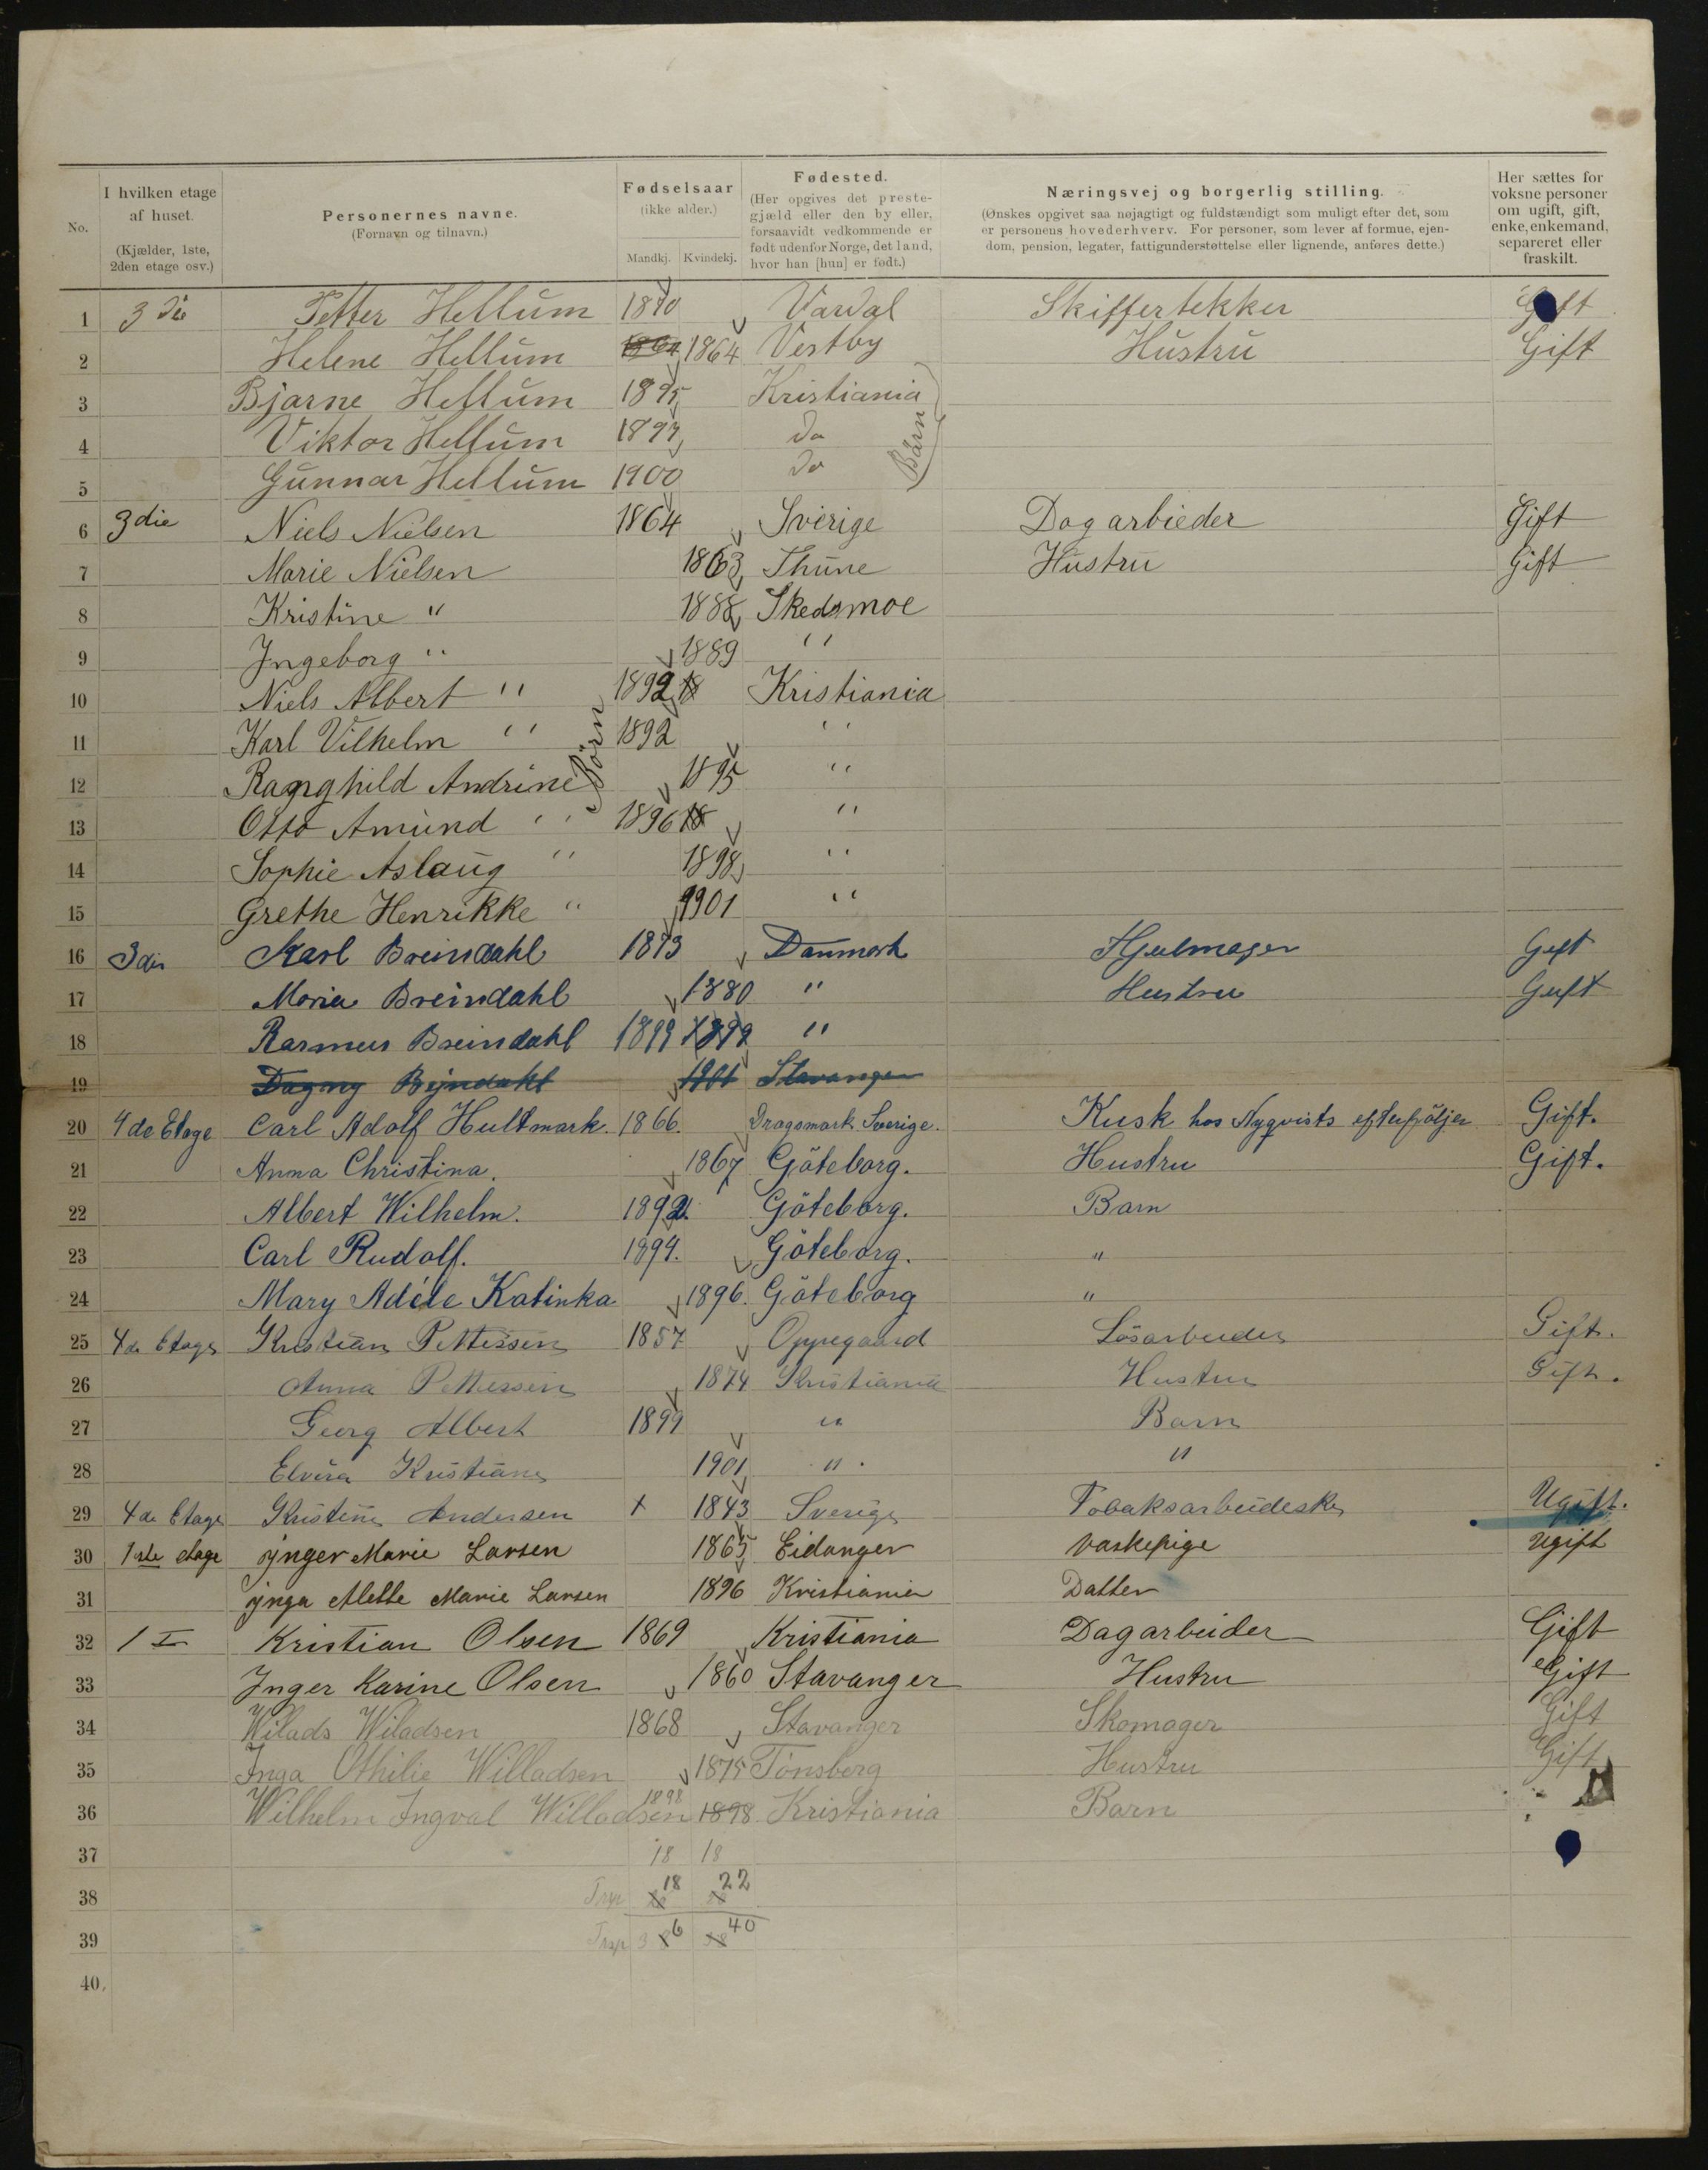 No. | I hvilken etage af huset. (Kjælder, 1ste, 2den etage osv.) | Personernes navne. (Fornavn og tilnavn.) | Fødselsaar (ikke alder.) Mandkj. Kvindekj. | Fødested. (Her opgives det prestegjæld eller den by eller, forsaavidt vedkommende er født udenfor Norge, det land, hvor han [hun] er født.) | Næringsvej og borgerlig stilling. (Ønskes opgivet saa nøjagtigt og fuldstændigt som muligt efter det, som er personens hovederhverv. For personer, som lever af formue, ejendom, pension, legater, fattigunderstøttelse eller lignende, anføres dette.) | Her sættes for voksne personer om ugift, gift, enke, enkemand, separeret eller fraskilt.
1 3die Petter Hellum 1870 Vardal Skiffertekker Gift
2 Helene Hellum 1864 1864 Vestby Hustru Gift
3 Bjarne Hellum 1895 Kristiania
4 Viktor Hellum 1897 Do
5 Gunnar Hellum 1900 Do
Børn
6 3die Niels Nielsen 1864 Sverige Dagarbieder Gift
7 Marie Nielsen 1863 Thune Hustru Gift
8 Kristine " 1888 Skedsmoe
9 Ingeborg " 1889 "
10 Niels Albert " 1892 18 Kristiania
11 Karl Vilhelm " 1892 "
12 Rangghild Andrine 1895 "
13 Otto Amund " 1896 18 "
14 Sophie Aslaug " 1898 "
15 Grethe Henrikke " 1901 "
Børn
16 3die Karl Breindahl 1873 Danmark Hjulmager Gift
17 Maria Breindahl 1880 " Hustru Gift
18 Rasmus Breindahl 1899 1899 "
19 Dagny Bejndahl 1901 Stavanger
20 4de Etage Carl Adolf Hultmark. 1866. Dragsmark Sverige. Kusk hos Nyqvists efterföljer Gift.
21 Anna Christina. 1867 Göteborg. Hustru Gift.
22 Albert Wilhelm. 1892. Göteborg. Barn
23 Carl Rudolf. 1894. Göteborg. "
24 Mary Adéle Katinka 1896. Göteborg "
25 4de Etage Kristian Pettersen 1857 Oppegaard Løsarbeider Gift.
26 Anna Pettersen 1874 Kristiania Hustru Gift.
27 Georg Albert 1899 " Barn
28 Elvira Kristiane 1901 " . "
29 4de Etage Kristine Andersen x 1843 Sverige Tobaksarbeideske Ugift.
30 1ste etage ynger Marie Larsen 1865 Eidanger vaskepige ugift
31 ynga Alette Marie Larsen 1896 Kristiania Datter
32 1 I Kristian Olsen 1869 Kristiania Dagarbeider Gift
33 Inger Karine Olsen 1860 Stavanger Hustru Gift
34 Wilads Wiladsen 1868 Stavanger Skomager Gift
35 Inga Othilie Willadsen 1875 Tønsberg Hustru Gift
36 Wilhelm Ingval Willadsen 1898 1898 Kristiania Barn
37 18 18
38 Trsp 18 22
39 Trsp 3 6 40
40.